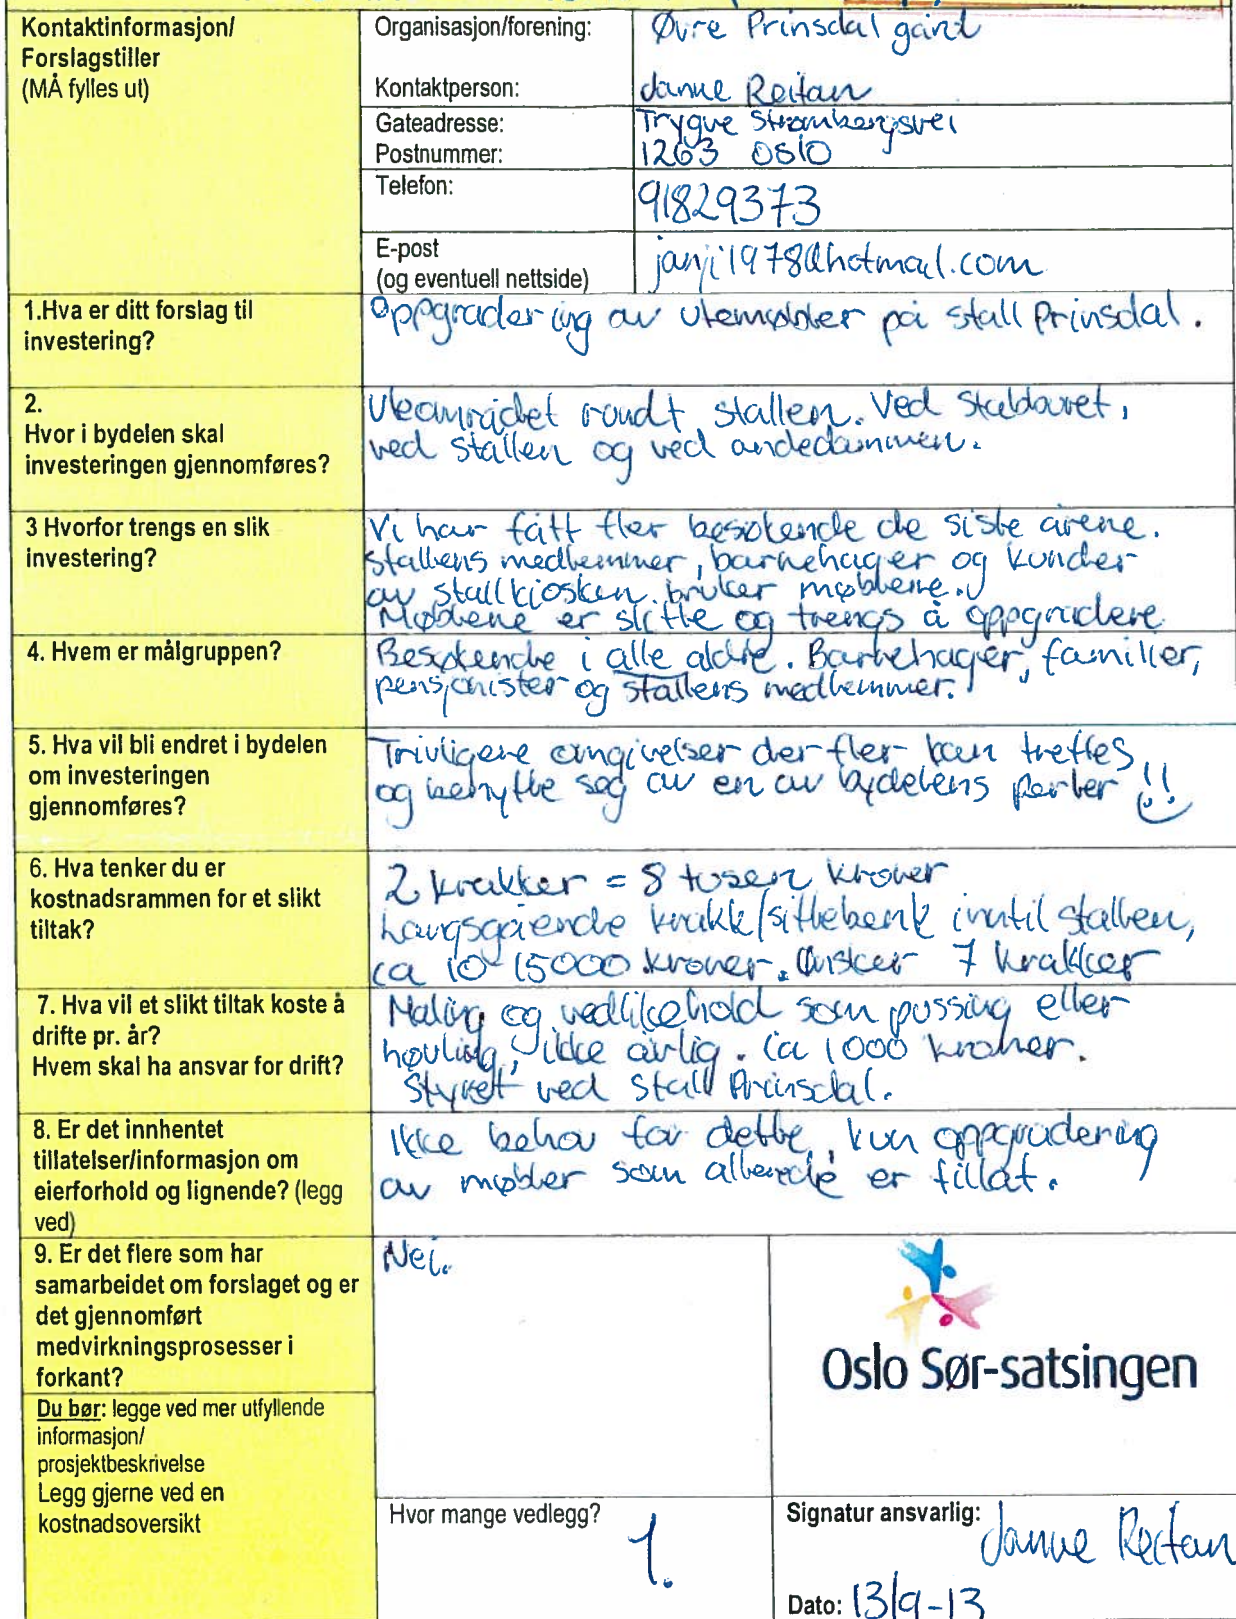 Kontaktinformasjon/
Forslagstiller
(MÅ fylles ut)
Organisasjon/forening: Øvre Prinsdal gård
Kontaktperson: Janne Reitan
Gateadresse: Trygve Strømbergsvei
Postnummer: 1263 Oslo
Telefon: 91829373
E-post
(og eventuell nettside) janji1978@hotmail.com
1.Hva er ditt forslag til
investering?
Oppgradering av utemøbler på stall Prinsdal.
2.
Hvor i bydelen skal
investeringen gjennomføres?
Uteområdet rundt stallen. Ved stabburet,
ved stallen og ved andedammen.
3 Hvorfor trengs en slik
investering?
Vi har fått fler besøkende de siste årene.
Stallens medlemmer, barnehager og kunder
av stallkiosken bruker møblene.
Møblene er slitte og trengs å oppgradere
4. Hvem er målgruppen?
Besøkende i alle aldre. Barnehager, familier,
pensjonister og stallens medlemmer.
5. Hva vil bli endret i bydelen
om investeringen
gjennomføres?
Trivligere omgivelser der fler kan treffes
og benytte seg av en av bydelens perler !!
6. Hva tenker du er
kostnadsrammen for et slikt
tiltak?
2 krakker = 8 tusen kroner
Langsgående krakk/sittebenk inntil stallen,
ca 10-15000 kroner. Ønsker 7 krakker
7. Hva vil et slikt tiltak koste å
drifte pr. år?
Hvem skal ha ansvar for drift?
Maling og vedlikehold som pussing eller
høvling, ikke årlig. Ca 1000 kroner.
Styret ved Stall Prinsdal.
8. Er det innhentet
tillatelser/informasjon om
eierforhold og lignende? (legg
ved)
Ikke behov for dette, kun oppgradering
av møbler som allerede er tillat.
9. Er det flere som har
samarbeidet om forslaget og er
det gjennomført
medvirkningsprosesser i
forkant?
Nei.
Oslo Sør-satsingen
Du bør: legge ved mer utfyllende
informasjon/
prosjektbeskrivelse
Legg gjerne ved en
kostnadsoversikt
Hvor mange vedlegg? 1.
Signatur ansvarlig: Janne Reitan
Dato: 13/9-13